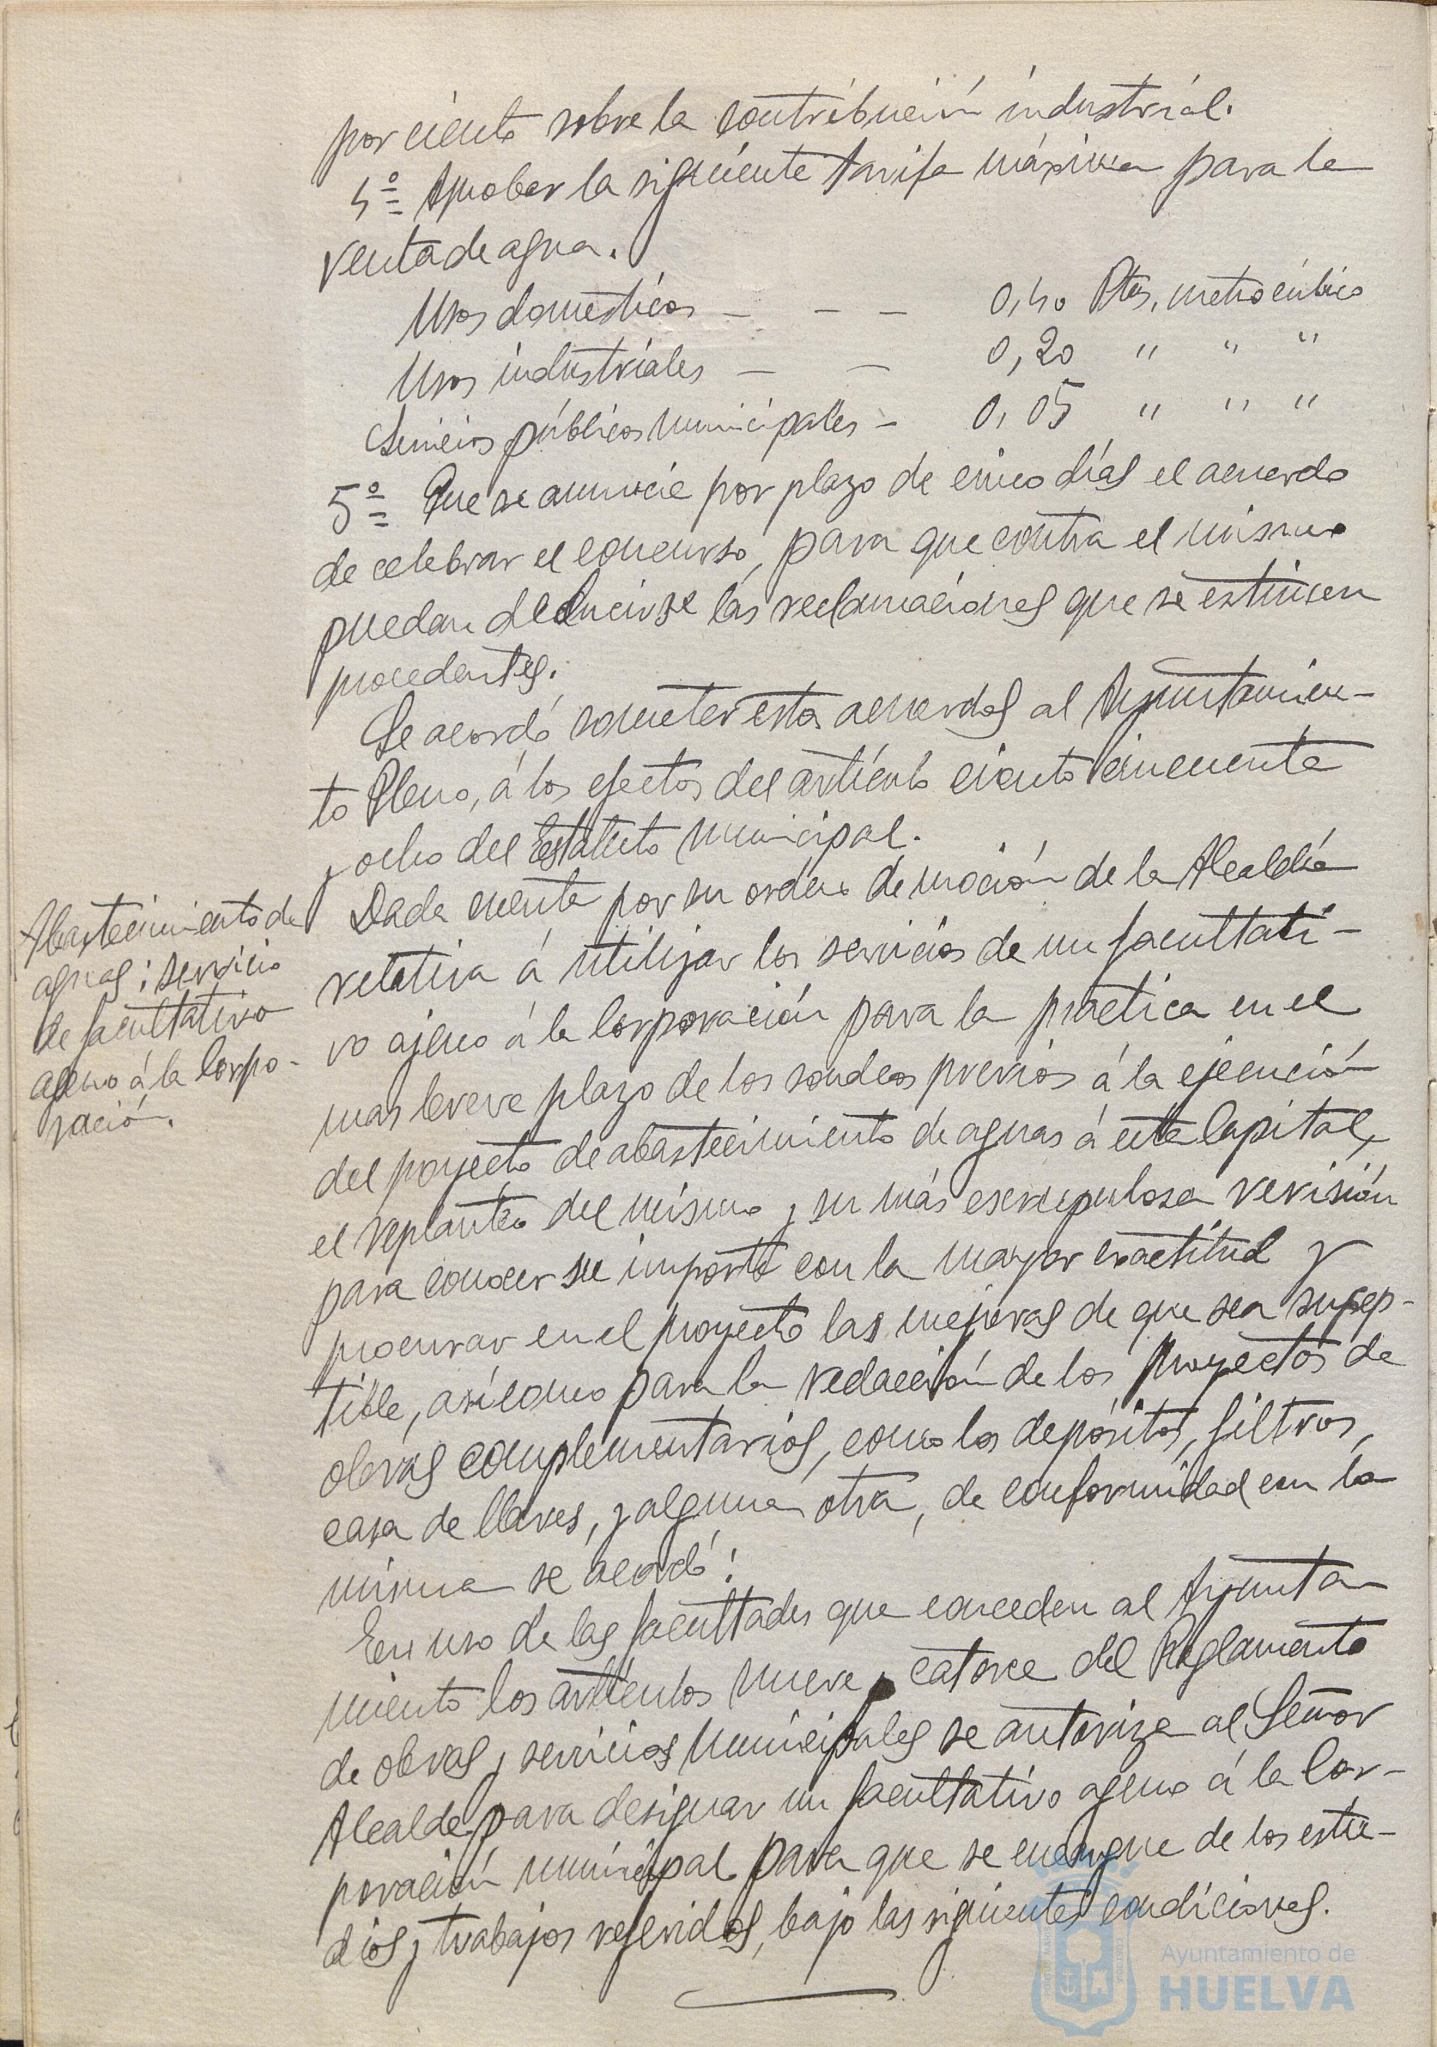 por ciento sobre la contribución industrial.
4º= Aprobar la siguiente tarifa máxima para la
venta de agua.
Usos domésticos — — — 0,40 Ptas, metro cúbico
Usos industriales — — 0,20 " " "
Servicios públicos municipales — 0,05 " " "
5º= Que se anuncie por plazo de cinco días el acuerdo
de celebrar el concurso, para que contra el mismo
puedan deducirse las reclamaciones que se estimen
procedentes.
Se acordó someter estos acuerdos al Ayuntamien-
to Pleno, á los efectos del artículo ciento cincuenta
y ocho del Estatuto Municipal.
Abastecimiento de
aguas; servicio
de facultativo
ageno á la Corpo-
ración.
Dada cuenta por su orden de moción de la Alcaldía
relativa á utilizar los servicios de un facultati-
vo ajeno á la Corporación para la práctica en el
mas breve plazo de los sondeos previos á la ejecución
del proyecto de abastecimiento de aguas á esta Capital,
el replanteo del mismo y su más escrupulosa revisión
para conocer su importe con la mayor exactitud y
procurar en el proyecto las mejoras de que sea suscep-
tible, asi como para la redacción de los proyectos de
obras complementarios, como los depósitos, filtros,
casa de llaves, y alguna otra, de conformidad con la
misma se acordó:
En uso de las facultades que conceden al Ayunta
miento los artículos nueve y catorce del Reglamento
de obras y servicios Municipales se autoriza al Señor
Alcalde para designar un facultativo ageno á la Cor-
poración municipal para que se encargue de los estu-
dios y trabajos referidos, bajo las siguientes condiciones.
Ayuntamiento de
HUELVA